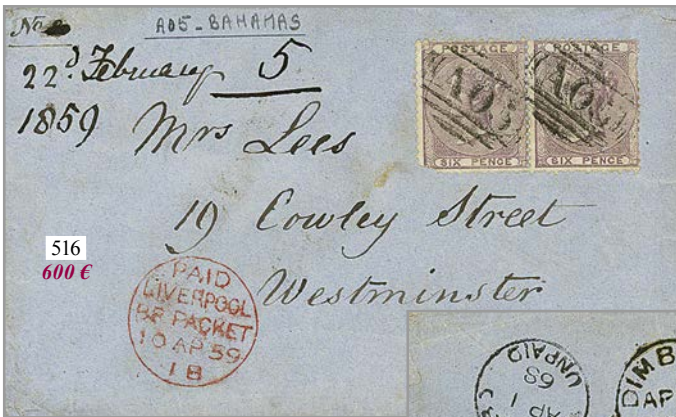 No
A05-BAHAMAS
22d February 5
1859
Mrs Lees
19 Cowley Street
Westminster
POSTAGE POSTAGE
A05 A05
SIX PENCE SIX PENCE
516
600 €
PAID
LIVERPOOL
BR PACKET
10 AP 59
1B
UNPAID
AP 1
DIMB
AP